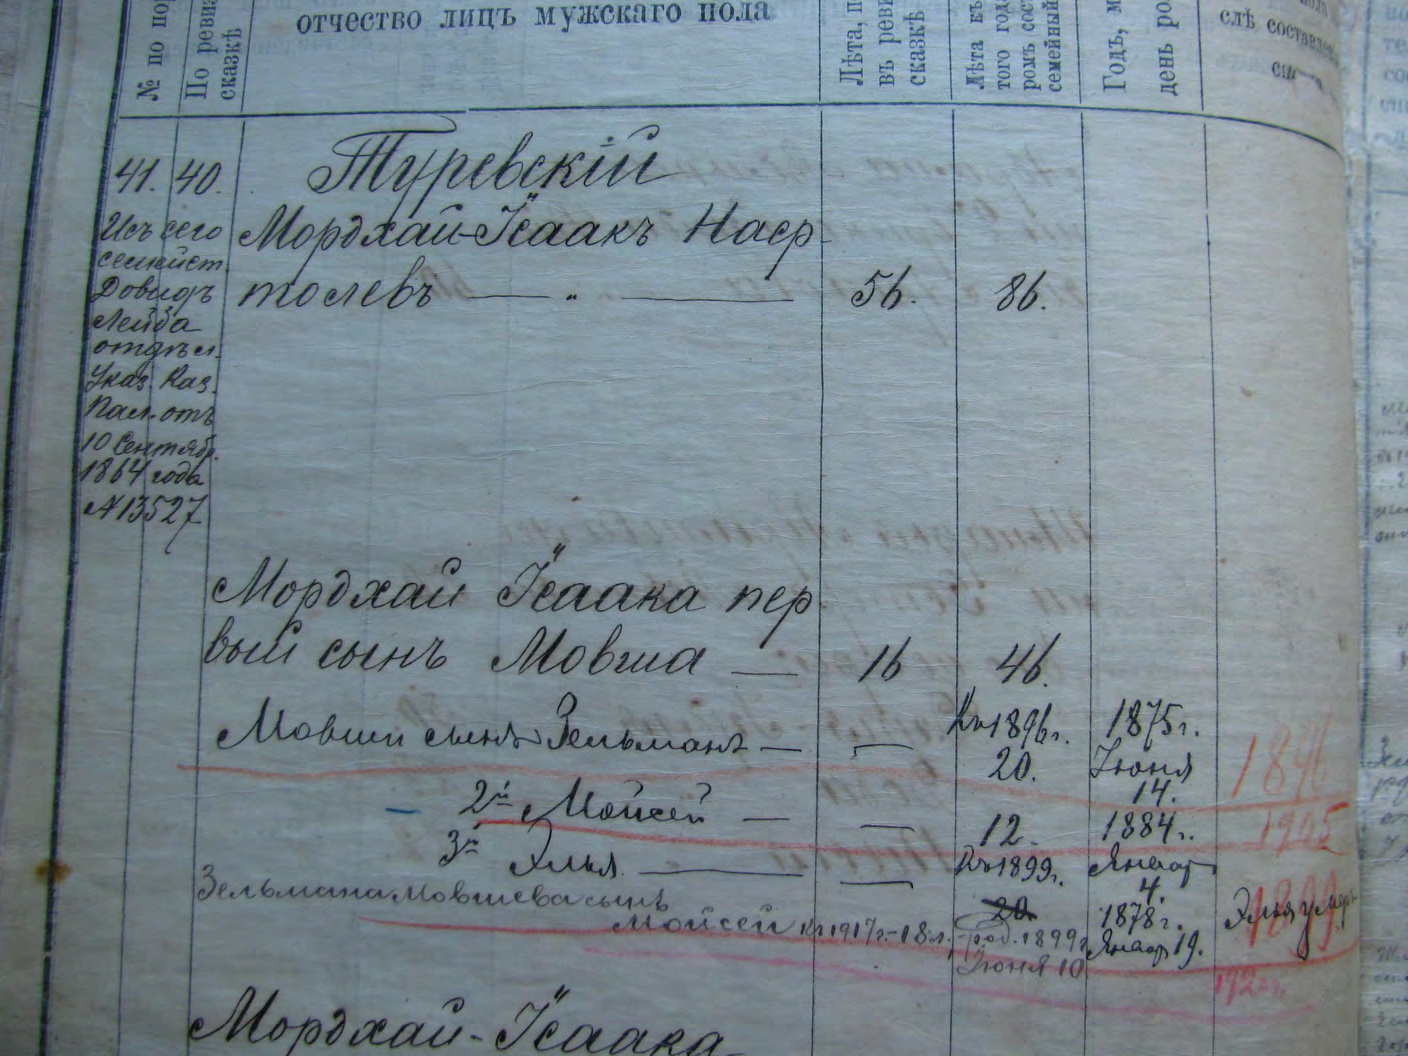 № по пор
По ревиз
сказкѣ
отчество лицъ мужскаго пола
Лѣта, п
въ реви
сказкѣ
Лѣта къ
того год
ромъ сос
семейный
Годъ, м
день ро
слѣ составле
41. 40. Туревскій
Мордхай-Ісаакъ Наср
толевъ — „ — 56. 86.
Изъ сего
семейст.
Довидъ
Лейба
отдѣл.
Указ. Каз.
Пал. отъ
10 Сентябр.
1864 года
№ 13527
Мордхай Ісаака пер
вый сынъ Мовша — 16 46.
Мовши сынъ Зельманъ — — Къ 1896 г. 1875 г.
20. Іюня
14. 1896
2й Мойсей — — 12. 1884 г. 1905
3й Элья — — Къ 1899 г. Январ
4.
20 1878 г.
Январ 19. 1899 Элья умер
Зельмана Мовшева сынъ
Мойсей къ 1917 г. - 18 л. род. 1899 г.
Іюня 10
Мордхай-Ісаака